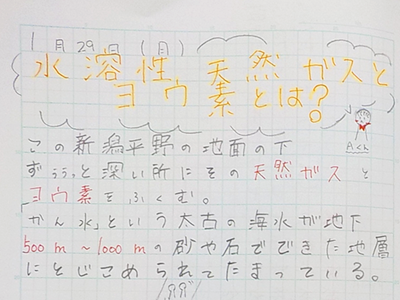 1月29日(月)
水溶性天然ガスと
ヨウ素とは?
Aくん
この新潟平野の地面の下
ずぅぅっと深い所にその天然ガスと
ヨウ素をふくむ。
「かん水」という太古の海水が地下
500m~1000mの砂や石でできた地層
にとじこめられてたまっている。